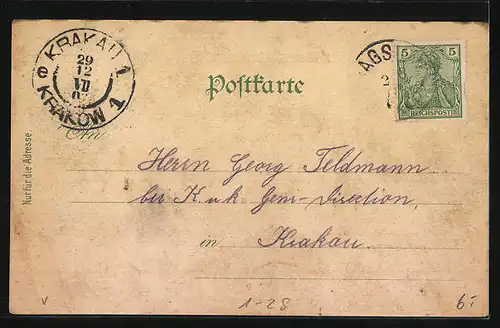 KRAKAU 1
29
12
VII
e KRAKÓW 1
Postkarte
AGS
5 5
REICHSPOST
An
Nur für die Adresse.
Herrn Georg Feldmann
bei K. u k Gem-Direction
in
Krakau.
v 1-28 6.-